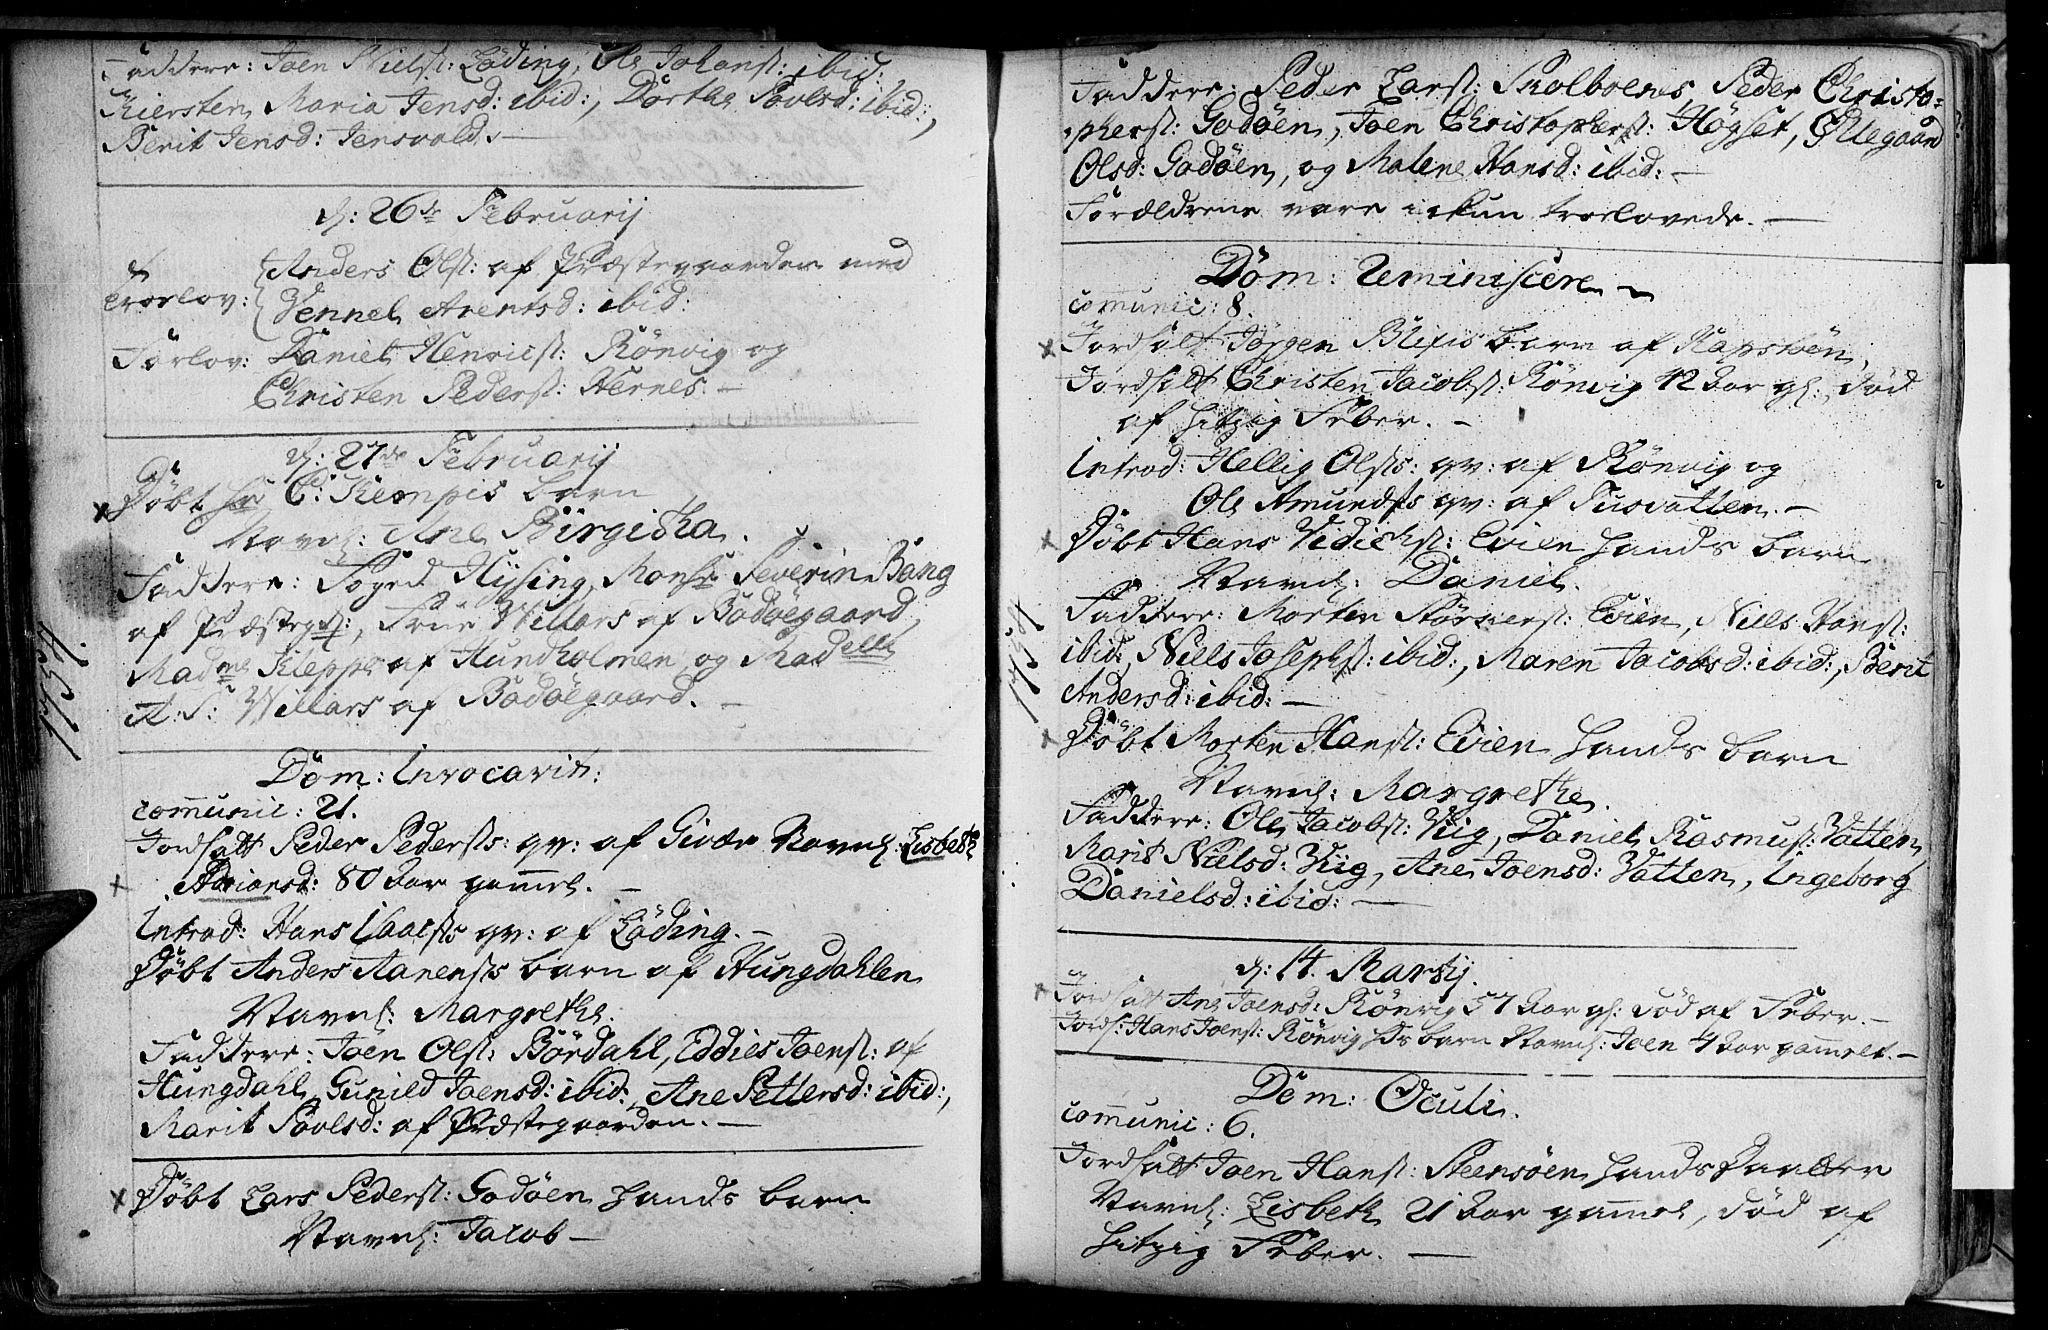 Faddere: Joen Nielsl: Løding, Ole Johansl: ibid:,
Kiersten Maria Jensd: ibid:, Dorthe Povlsd: ibid:,
Berit Jensd: Jensvold. —
d: 26de Februarij
Troelov: Anders Olsl: af Præstegaarden med
Pennel Arentsd: ibid:
Forlov: Daniel Henricsl: Rönvig og
Christen Pedersl: Hernes. —
d: 27de Februarij
Döbt Hr C: Kempis barn
Navnl: Ane Birgitha.
Faddere: Foged Hysing, Monsr Severin Bang
af Præstegd:, Frue Willars af Bodöegaard,
Madme Kleppe af Hundholmen, og Madelle
A: S: Willars af Bodöegaard. —
Dom: Invocavit:
comunic: 21.
Jordfæstt Peder Pedersls: qv: af Givær Navnl: Lisbeth
Adriansd: 80 Aar gamel. —
Introd: Hans Isaacsls qv: af Löding. —
Döbt Anders Aanensls barn af Hungdahlen
Navnl: Margrethe.
Faddere: Joen Olsl: Bördahl, Eddies Joensl: af
Hungdahl, Gunild Joensd: ibid:, Ane Pettersd: ibid:,
Marit Povlsd: af Præstegaarden. —
Döbt Lars Pedersl: Godöen hands barn
Navnl: Jacob —
1751.
Faddere: Peder Larsl: Skolboenes, Peder Christo=
phersl: Godöen, Joen Christophersl: Høgset, Ellegaard
Olsd: Godöen, og Malene Hansd: ibid: —
Forældrene vare ickun troelovede. —
Dom: Reminiscere
comunic: 8.
Jordfæstt Jörgen Blixis barn af Kapstöen,
Jordfæstt Christen Jacobsl: Rönvig 42 Aar gl:, död
af hitzig Feber. —
Introd: Hellig Olsls: qv: af Rönvig og
Ole Amundsls qv: af Tusvatten. —
Döbt Hans Didichsl: Evien hands barn
Navnl: Daniel.
Faddere: Morten Störkersl: Evien, Niels Hansl:
ibid:, Niels Josephsl: ibid:, Maren Jacobsd: ibid:, Berit
Andersd: ibid: —
Döbt Morten Hansl: Evien hands barn
Navnl: Margrethe.
Faddere: Ole Jacobsl: Viig, Daniel Rasmusl: Vatten,
Marit Nielsd: Viig, Ane Joensd: Vatten, Ingeborg
Danielsd: ibid: —
d: 14. Martij.
Jordfæstt Ane Joensd: Rönvig 57 Aar gl: död af Feber. —
Jordf: Hans Joensl: Rönvig hs barn Navnl: Joen 4 Aar gammelt. —
Dom: Oculi.
comunic: 6.
Jordfæstt Joen Hansl: Steensöen hands Daatter
Navnl: Lisbeth 21 Aar gamel, död af
hitzig Feber. —
1751.